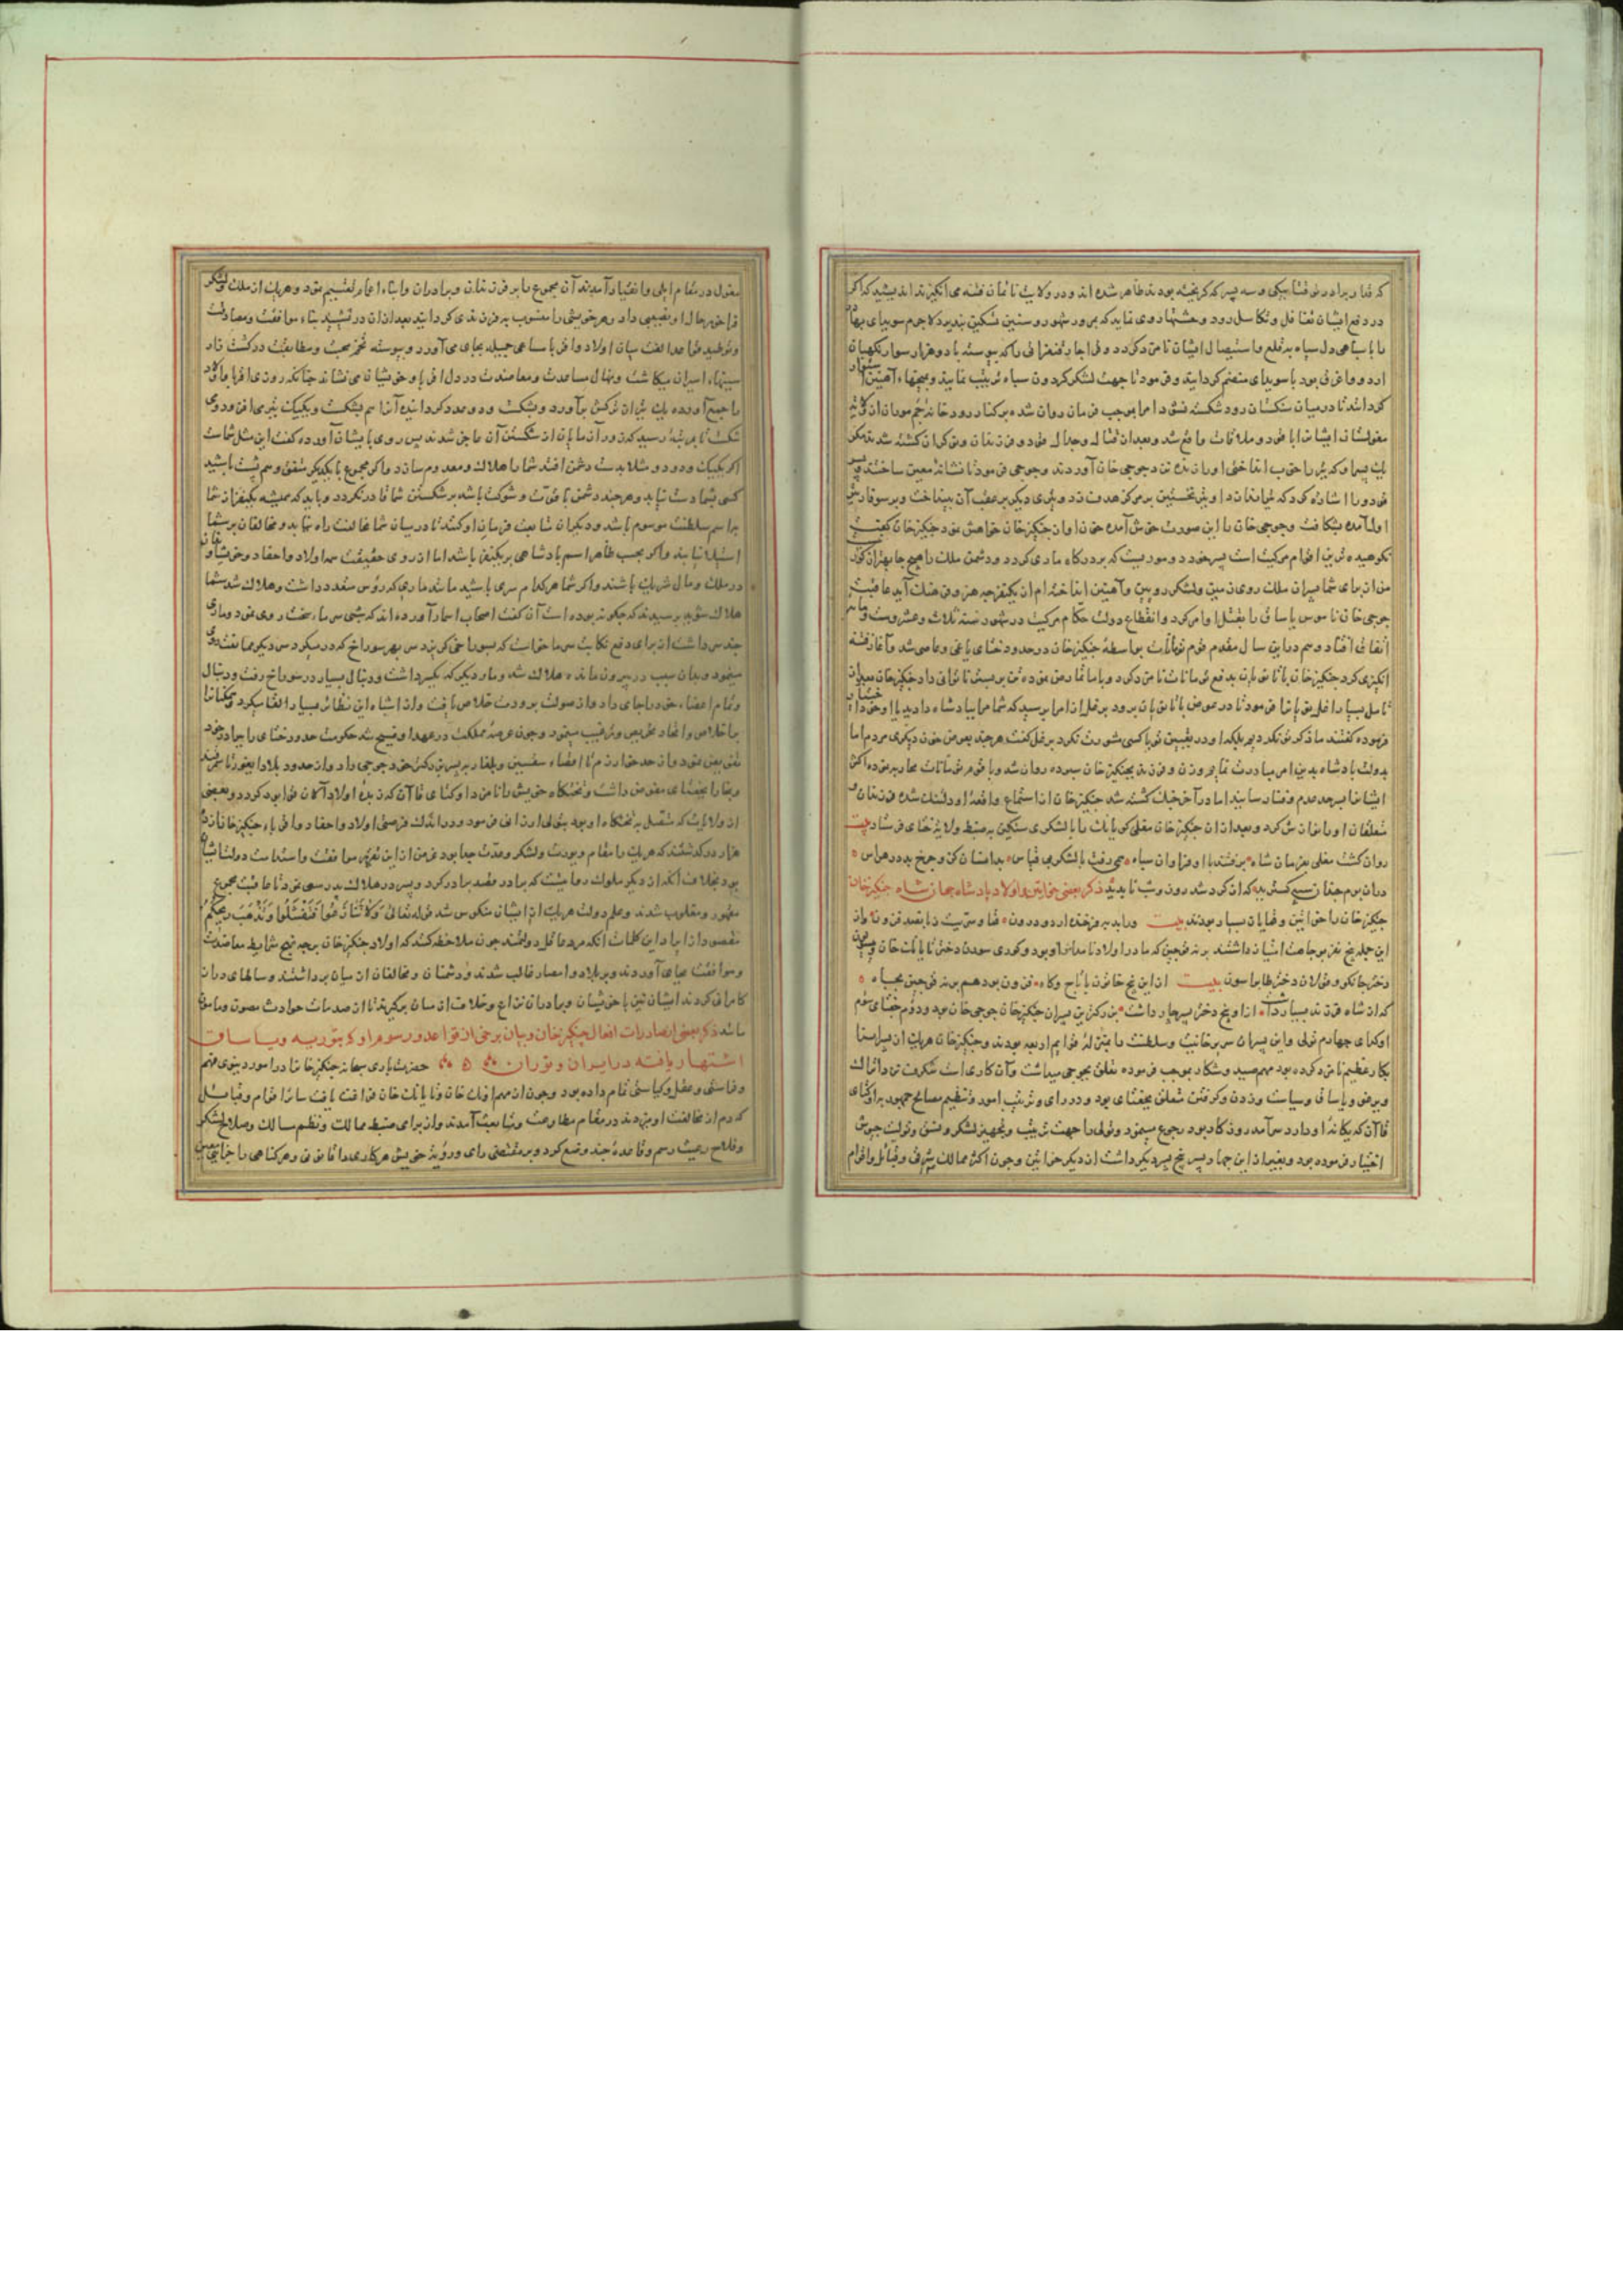 که قتا و برادر توقتا بیکی و سه پسر که گریخته بودند ظاهر شده اند و در ولایت نایمان فتنه می انگیزند اندیشید که اگر
در دفع ایشان تغافل و تکاسل رود و
با سپاهی دل سیاه به قلع و استیصال ایشان نامزد کرد و دو هزار سوار
اردو و قاعده بود با سوبدای منضم گردانید و فرمود تا جهت لشکر گردون سیاه ترتیب نمایند و میخهاء آهنین
کردانند تا در میان سنگستان زود شکسته نشود امرا بموجب فرمان روان شده بر کنار رود خانه جم موران از
مغولستان ایشان را ملاقات واقع شد و بعد از قتال و جدال قودو و فرزندان و نوکران کشته شدند مگر
یک پسر او که تیر را خوب انداختی او را زنده نزد جوجی خان آوردند و جوجی فرمود تا نشانه معین ساختند و پسر
قودو را اشاره کرد که تیر اندازد او تیر نخستین بر مرکز هدف زد و تیری دیگر بر عقب آن بینداخت و بر سوفار تیر
اول آمده بشکافت و جوجی خان را این صورت خوش آمده خون او از چنکیز خان خواهش نمود چنکیز خان گفت
نکوهیده ترین اقوام مرکیت است پسر خود دو سود نیست که بر درگاه ما دی گردد و دشمن ملک را هیچ جا بهتر از گور
من از برای شما میدان ملک روی زمین و لشکر
جوجی خان ناموس یاساق را بقتل او امر کرد و انقطاع دولت حکام مرکیت در شهور سنه ثلاث و عشر و ستمایه
اتفاق افتاد و هم در این سال مقدم قوم تومات بواسطه چنکیز خان در حدود ختای یاغی و عاصی شد و آغاز فتنه
انکیزی کرد چنکیز خان
تامل بسیار
فرموده گفتند ما ذکر تو نکردیم بلکه او در تعیین تو با کسی مشورت نکرد برغل گفت هر چند بعوض خون دیگری مردم اما
بدولت پادشاه بدین امر مبادرت نمایم و زن و فرزند بچنکیز خان سپرده روان شد و با قوم تومات محاربه نموده اکثر
ایشانرا بسرحد عدم و فنا رسانید اما در آخر جنک کشته شد چنکیز خان از استماع واقعه او دلتنک شده فرزندان و
متعلقان او را نوازش کرد و بعد از آن چنکیز خان مقلی کویانک را با لشکری سنگین بضبط ولایت ختای فرستاد بیت
روان گشت مقلی بفرمان شاه برفتند با او فراوان سپاه همی رفت با لشکری قیاس
ذکر بعضی خواتین و اولاد پادشاه جهان شاه چنکیز خان
چنکیز خان را خواتین و قمایان بسیار بودند بیت
این جمله پنج نفر بوجاهت امتیاز داشتند برته فوجین که مادر اولاد نامدار او بود
بیت از این پنج خاتون با تاج و گاه فزون بود هم برته فوجین بجاه
که از شاه فرزند بسیار داشت از او پنج دختر پسر چهار داشت بزرگترین پسران چنکیز خان جوجی خان بود و دوم جغتای سیم
اوکتای چهارم تولی و این پسران سریر خانیت و سلطنت را بمنزله قوایم اربعه بودند و چنکیز خان هر یک از پسران را
بکار عظیم نامزد کرده بود مهم صید و شکار بموجب فرموده تعلق بجوجی میداشت و آن کاری است شگرف نزد اتراک
و یرغو و یاساق و سیاست و زدن و گرفتن متعلق بجغتای بود و در رای و ترتیب امور و تنظیم مصالح جمهور براوکتای
قاآن که یگانه او دار و سرآمد روزگار بود رجوع مینمود و تولی را جهت ترتیب و تجهیز لشکر و تمشیت جیوش
اختیار فرموده بود و بغیر از این چهار پسر پنج پسر دیگر داشت از دیگر خواتین و چون اکثر ممالک شرق و قبائل و اقوام
مغول در مقام ایلی و انقیاد آمدند آن مجموع را بر فرزندان و برادران و ابناء اعمام تقسیم نمود و هر یک از ملک و لشکر
فراخور حال او نصیبی داد و هر خویشی را منسوب به فرزندی گردانید بعد از آن در تشیید بناء موافقت و مصادقت
و توطید قواعد الفت میان اولاد و اقربا مساعی جمیله بجای می آورد و پیوسته تخم محبت و مطابقت در کشت زار
سینهاء ایشان میکاشت و نهال مساعدت و معاضدت در دل اقربا و خویشان می نشاند چنانکه روزی اقربا و اولاد
را جمع آورده یک تیر از ترکش برآورد و بشکست و دو عدد گردانیده آنرا هم بشکست و یکیک تیر می افزود و می
شکست تا بمرتبه رسید که زور آزمایان از شکستن آن عاجز شدند پس روی بایشان آورده گفت این مثل شماست
اگر یکیک و دو دو مثلا بدست دشمن افتد شما را هلاک و معدوم سازد و اگر مجموع با یکدیگر متفق و هم پشت باشید
کسی بشما دست نیابد و هر چند دشمن با قوت و شوکت باشد بر شکستن شما قادر نگردد و باید که همیشه یکنفر از شما
براسم سلطنت موسوم باشد و دیگران متابعت فرمان او کنند تا در میان شما مخالفت راه نیابد و مخالفان بر شما
استیلا نیابند و اگر بحسب ظاهر اسم پادشاهی بر یکنفر باشد اما از روی حقیقت همه اولاد و احفاد و خویشاوندان
در ملک و مال شریک باشند و اگر شما هر کدام سری باشید مانند ماری که رؤس متعدد داشت و هلاک شد شما
هلاک شوید پرسیدند که چگونه بوده است آن گفت اصحاب اسمار آورده اند که شبی سرما سخت روی نمود و ماری
چند سر داشت از برای دفع نکایت سرما خواست که بسوراخی گریزد سر بهر سوراخ که در میکرد سر دیگر ممانعت
مینمود و بدان سبب در بیرون مانده هلاک شد و مار دیگر که یکسر داشت و دنبال بسیار در سوراخ رفت و دنبال
و تمام اعضاء خود را جای داد و از صولت برودت خلاص یافت و از اشباه این نظائر بسیار القا میکرد و یکایک را
باخلاص و اتحاد تحریص و ترغیب مینمود و چون عرصه مملکت در عهد او فسیح شد حکومت حدود ختای را ببرادر خود
تعیین نمود و از حد خوارزم تا اقصاء سقسین و بلغار بر پسر بزرگتر خود جوجی داد و از حدود بلاد ایغور تا سمرقند
و بخارا بجغتای مفوض داشت و تختگاه خویش را نامزد اوکتای قاآن کرد
از ولایت که متصل به تختگاه او بود بتولی ارزانی فرمود و در اندک فرصتی اولاد و احفاد و اقرباء چنکیز خان از ده
هزار در گذشتند که هر یک را مقام و یورت و لشکر و عدت جدا بود غرض از این تقریر موافقت و استقامت دولت ایشان
بود بخلاف آنکه از دیگر ملوک روایتست که برادر قصد برادر کرد و پسر در هلاک پدر سعی نمود تا عاقبت مجموع
مقهور و مغلوب شدند و علم دولت هر یک از ایشان منکوس شد قوله تعالی وَلَا تَنَازَعُوا فَتَفْشَلُوا وَتَذْهَبَ رِيحُكُمْ
مقصود از ایراد این کلمات آنکه مرد عاقل دولتمند چون ملاحظه کند که اولاد چنکیز خان بر چه نهج شرایط معاضدت
و موافقت بجای آوردند و بر بلاد و امصار غالب شدند و دشمنان و مخالفان از میان برداشتند و سالهای دراز
کامرانی کردند ایشان نیز با خویشان و برادران نزاع و خلاف از میان برگیرند تا از صدمات حوادث مصون و مامون
مانند ذکر بعضی از صادرات افعال چنکیز خان و بیان برخی از قواعد و رسوم او که بتوریه و یاساق
اشتهار یافته در ایران و توران حضرت باری سبحانه چنکیز خان را در امور دنیوی فهم
و فراستی و عقل و کیاستی تمام داده بود و چون از مهم اونک خان و تایانک خان فراغت یافت سائر اقوام و قبائل
که دم از مخالفت او میزدند در مقام مطاوعت و متابعت آمدند و از برای ضبط ممالک و نظم مسالک و صلاح لشکر
و فلاح رعیت رسم و قاعده چند وضع کرد و بر مقتضی رای و رویت خویش هر کاری را قانونی و هر گناهی را جزایی معین